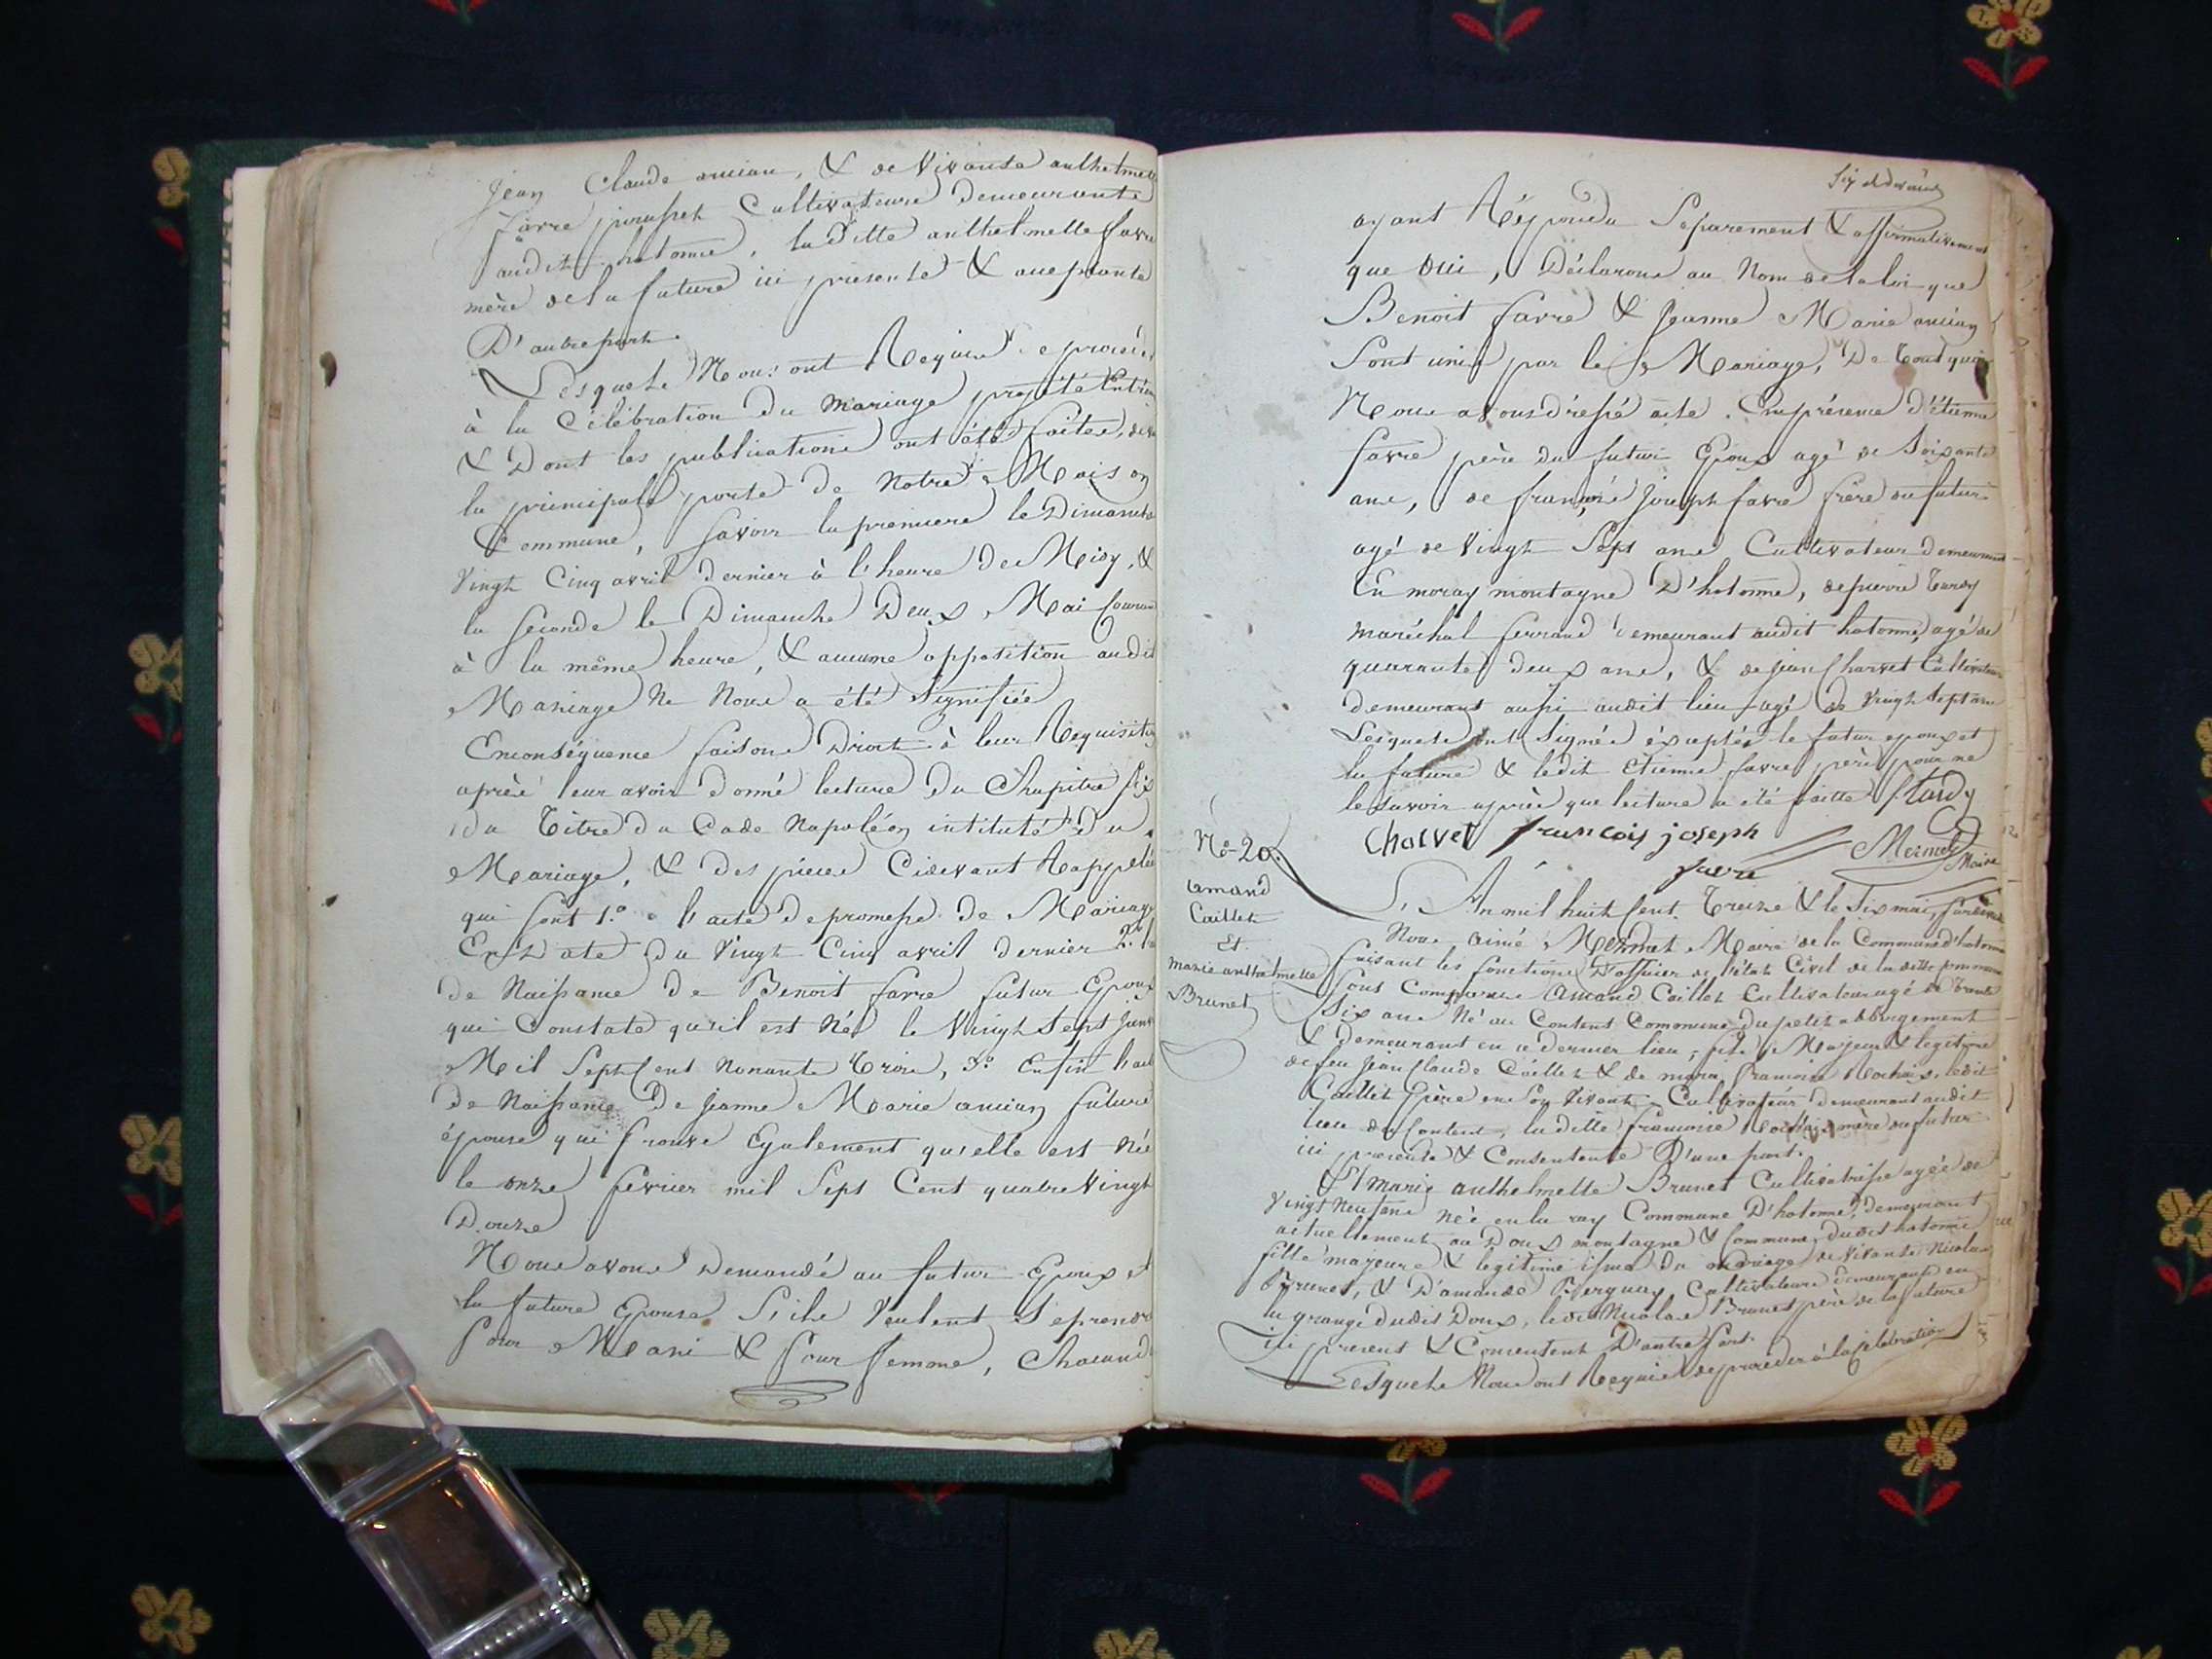 Jean Claude ancian, & de Vivante anthelmette
favre jousset Cultivateurs Demeurants
audit hotonne, la ditte anthelmette favre
mère de la future ici présente & acceptante
D'autre part.
Lesquels Nous ont Requis de procéder
à la Célébration du mariage projetté Entr'eux
& Dont les publications ont été faites, devant
la principale porte de Notre Maison
Commune, savoir la première le Dimanche
Vingt Cinq avril dernier à l'heure de Midy, &
la seconde le Dimanche Deux Mai Courant
à la même heure, & aucune opposition audit
Mariage Ne Nous a été Signifiée
Enconséquence faisons Droit à leur Requisition
après leur avoir donné lecture du Chapitre six
du Titre du Code Napoléon intitulé du
Mariage, & des pièces Cidevant Rappelées
qui sont 1.º l'acte de promesse de Mariage
En Date du Vingt Cinq avril dernier 2.º
de Naissance de Benoit favre futur Epoux
qui Constate qu'il est Né le Vingt Sept
Mil Sept Cent Nonante Trois, 3.º Enfin
de Naissance De Jeanne Marie ancian future
épouse qui prouve Egalement qu'elle est Née
le onze février mil Sept Cent quatre Vingt
Douze
Nous avons Demandé au futur Epoux et
la future Epouse S'ils Veulent Se prendre
Pour Mari & Pour femme, Chacun d'
ayant Répondu Séparement & affirmativement
que Oui, Déclarons au Nom de la loi que
Benoit favre & Jeanne Marie ancian
Sont unis par le Mariage, De tout quoi
Nous avons dressé acte. En présence d'étienne
favre père du futur Epoux agé de Soixante
ans, de françois Joseph favre frère du futur
agé de Vingt Sept ans Cultivateur demeurant
En moray montagne D'hotonne, de pierre Tardy
maréchal ferrand demeurant audit hotonne, agé de
quarante deux ans, & de jean Charvet Cultivateur
demeurant aussi audit lieu agé de Vingt Sept ans
Lesquels ont Signés éxceptés le futur epoux et
la future & ledit Etienne favre père pour ne
le savoir après que lecture a été faitte Tardy
Charvet francois joseph
favre Mermet
Maire
Nº 20.
Amand
Caillet
Et
Marie anthelmette
Brunet
L'An mil huit Cent Treize & le Six mai, Pardevant
Nous aimé Mermet Maire de la Commune d'hotonne
faisant les fonctions D'officier de l'état Civil de la ditte Commune
Sont Comparus Amand Caillet Cultivateur agé de Trente
Six ans Né au Content Commune du petit abbergement
& demeurant en ce dernier lieu, fils Majeur & legitime
de feu Jean Claude Caillet & de françoise ledit
Caillet Père en Son Vivant Cultivateur demeurant audit
lieu du Content, la ditte françoise mère du futur
ici présente & Consentente D'une part.
Et marie anthelmette Brunet Cultivatrisse agée de
Vingt Neuf ans née en la ray Commune D'hotonne, demeurant
actuellement au Doux montagne & Commune dudit hotonne
fille majeure & legitime issue du mariage de Vivants Nicolas
Brunet, & D'amande Cultivateurs demeurants en
la grange dudit Doux, ledit Nicolas Brunet père de la future
ici présent & Consentent D'autre Part.
Lesquels Nous ont Requis de procéder à la Célébration